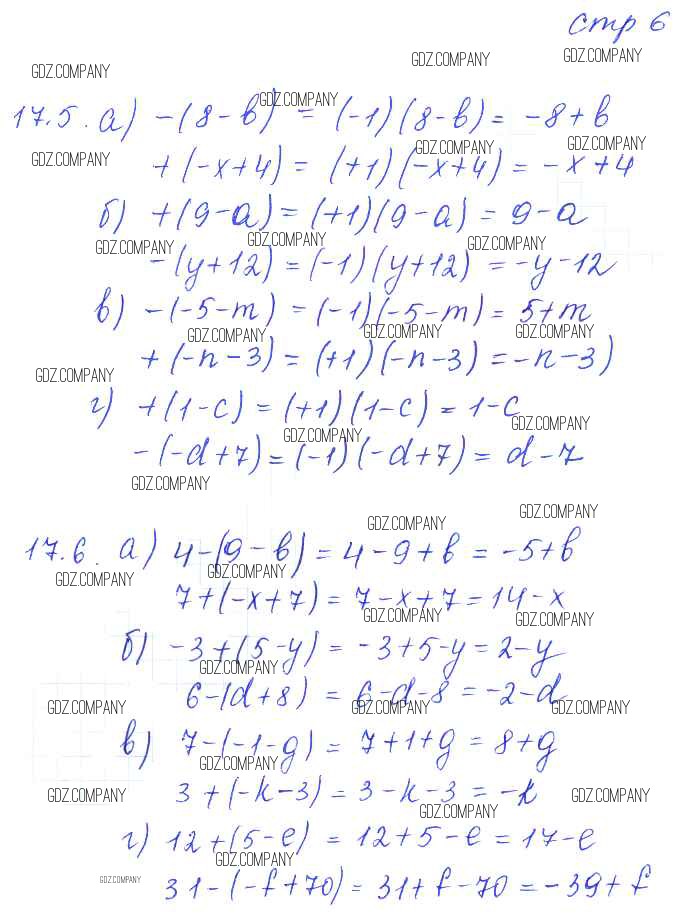 стр 6
GDZ.COMPANY GDZ.COMPANY GDZ.COMPANY
17.5. а) -(8-b) = (-1)(8-b) = -8+b
GDZ.COMPANY
GDZ.COMPANY GDZ.COMPANY GDZ.COMPANY
+(-x+4) = (+1)(-x+4) = -x+4
б) +(9-a) = (+1)(9-a) = 9-a
GDZ.COMPANY GDZ.COMPANY GDZ.COMPANY
-(y+12) = (-1)(y+12) = -y-12
в) -(-5-m) = (-1)(-5-m) = 5+m
GDZ.COMPANY GDZ.COMPANY GDZ.COMPANY
+(-n-3) = (+1)(-n-3) = -n-3)
GDZ.COMPANY
г) +(1-c) = (+1)(1-c) = 1-c
GDZ.COMPANY GDZ.COMPANY
-(-d+7) = (-1)(-d+7) = d-7
GDZ.COMPANY
GDZ.COMPANY GDZ.COMPANY
17.6. а) 4-(9-b) = 4-9+b = -5+b
GDZ.COMPANY GDZ.COMPANY
7+(-x+7) = 7-x+7 = 14-x
GDZ.COMPANY GDZ.COMPANY
б) -3+(5-y) = -3+5-y = 2-y
GDZ.COMPANY
6-(d+8) = 6-d-8 = -2-d
GDZ.COMPANY GDZ.COMPANY GDZ.COMPANY
в) 7-(-1-g) = 7+1+g = 8+g
GDZ.COMPANY
3+(-k-3) = 3-k-3 = -k
GDZ.COMPANY GDZ.COMPANY GDZ.COMPANY
г) 12+(5-e) = 12+5-e = 17-e
GDZ.COMPANY
31-(-f+70) = 31+f-70 = -39+f
GDZ.COMPANY